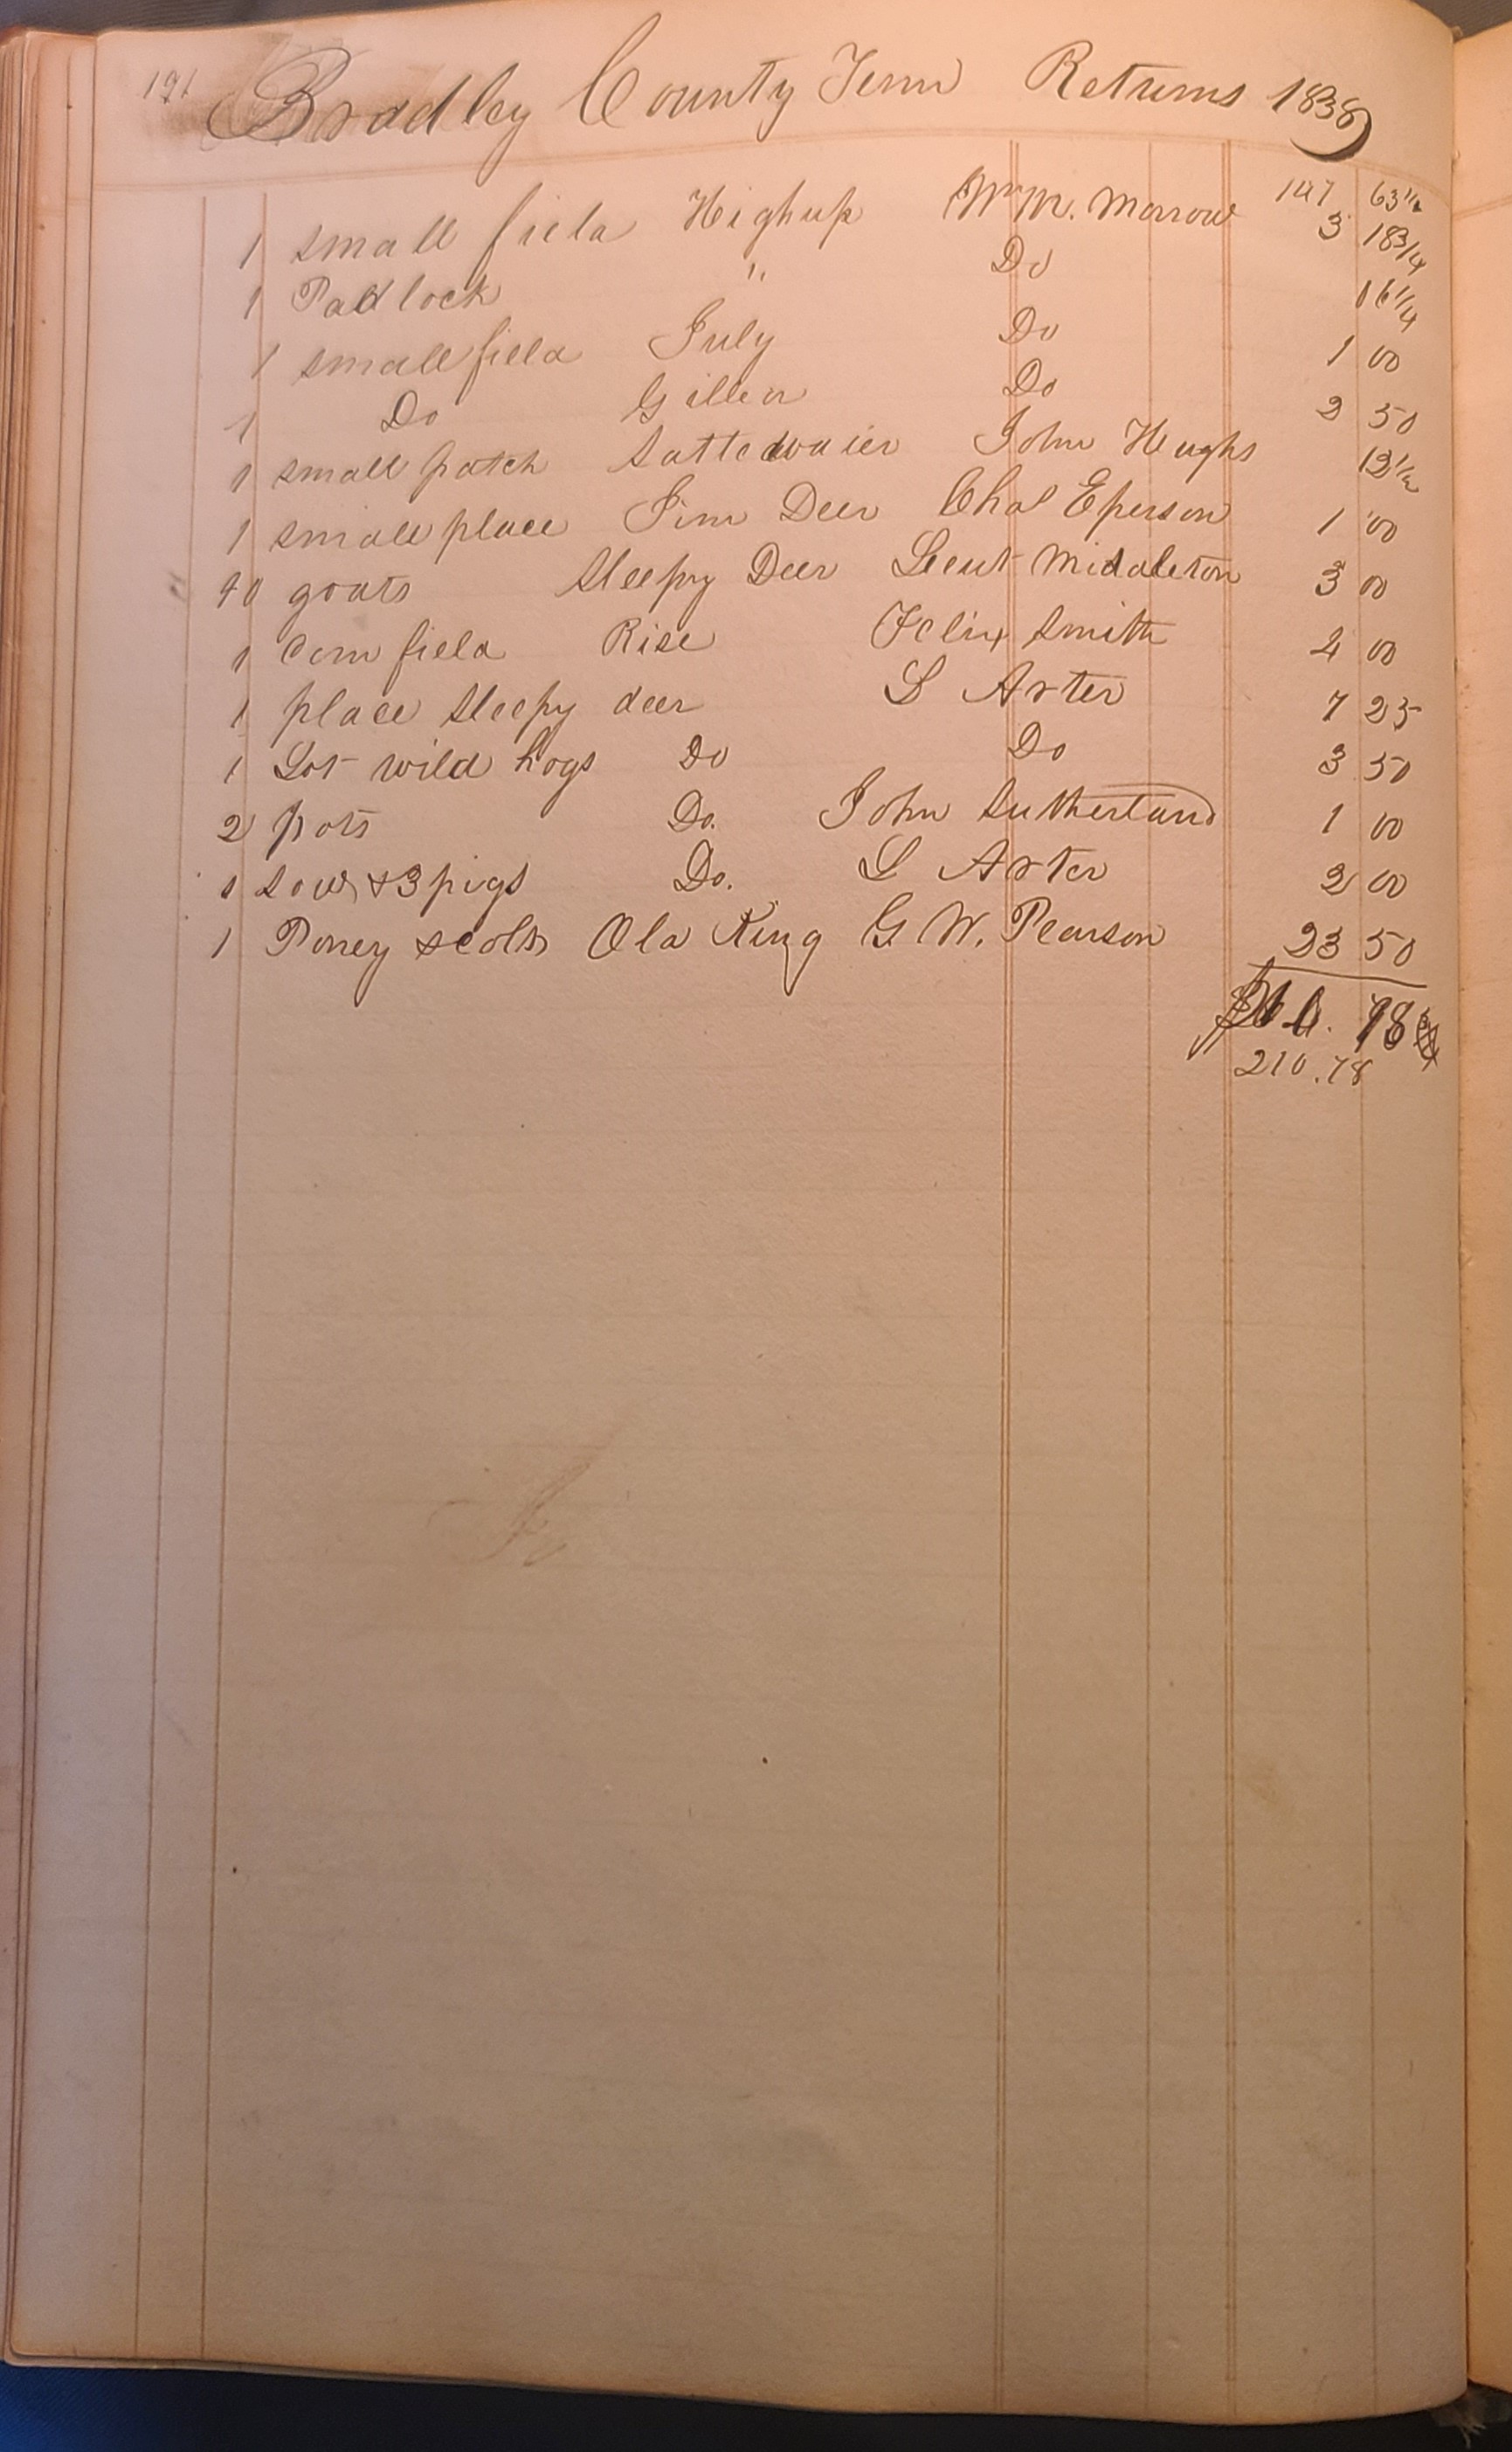 191 Bradley County Tenn Returns 1838
147 63 1/2
1 small field Highup Wm M. Morrow 3 18 3/4
1 Padlock " Do 16 1/4
1 small field July Do 1 00
1 Do Gillen Do 2 50
1 small patch John Hughs 12 1/2
1 small place Jim Deer Chal Eperson 1 00
40 goats Sleepy Deer Lieut Middleton 3 00
1 corn field Rise Felix Smith 4 00
1 place Sleepy deer L Arter 7 25
1 Lot wild hogs Do Do 3 50
2 pots Do. John Sutherland 1 00
1 Sow & 3 pigs Do. L Arter 2 00
1 Poney & colt Old King G W. Pearson 23 50
210.78